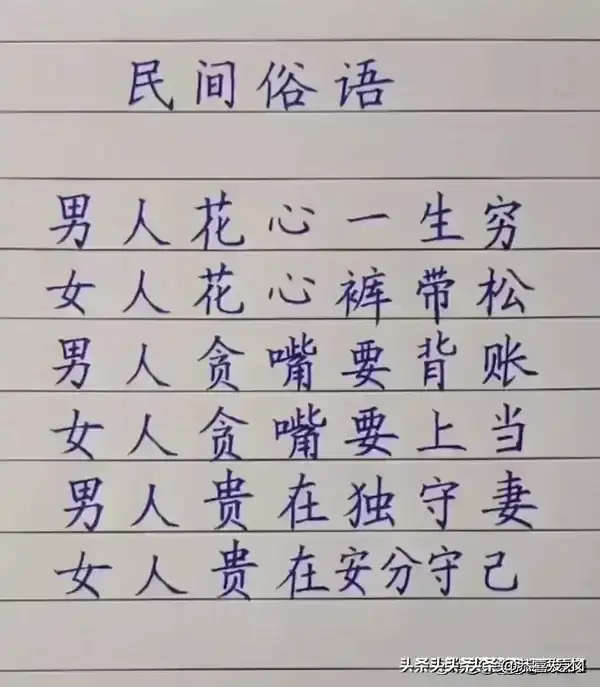 民间俗语
男人花心一生穷
女人花心裤带松
男人贪嘴要背账
女人贪嘴要上当
男人贵在独守妻
女人贵在安分守己